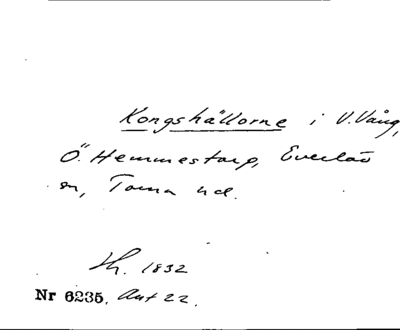 Kongshällorne i V. Vång,
Ö. Hemmestorp, Everlöv
sn, Torna hd.
Sk. 1832
Nr 6235. Akt 22.